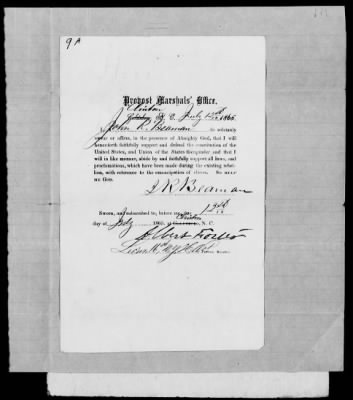 9A
Provost Marshals' Office.
Clinton
N. C. July 12th 1865.
I John R. Beaman do solemnly
swear or affirm, in the presence of Almighty God, that I will
henceforth faithfully support and defend the constitution of the
United States, and Union of the States thereunder and that I
will in like manner, abide by and faithfully support all laws, and
proclamations, which have been made during the existing rebel-
lion, with reference to the emancipation of slaves. So help
me God.
J R Beaman
Sworn, and subscribed to, before me, this 12th
Clinton
day of July 1865, at N. C.
Albert Foster
Lieut